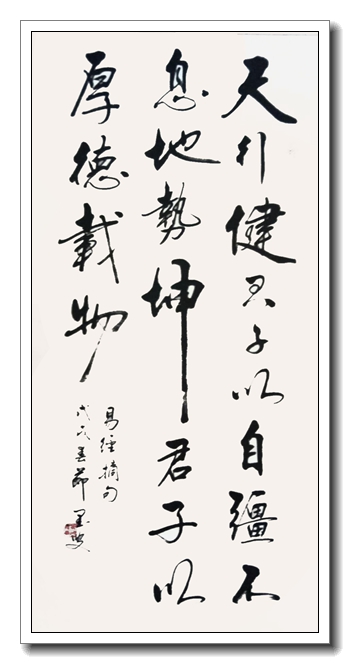 天行健君子以自彊不
息地勢坤君子以
厚德載物
易經摘句
戊戌春節